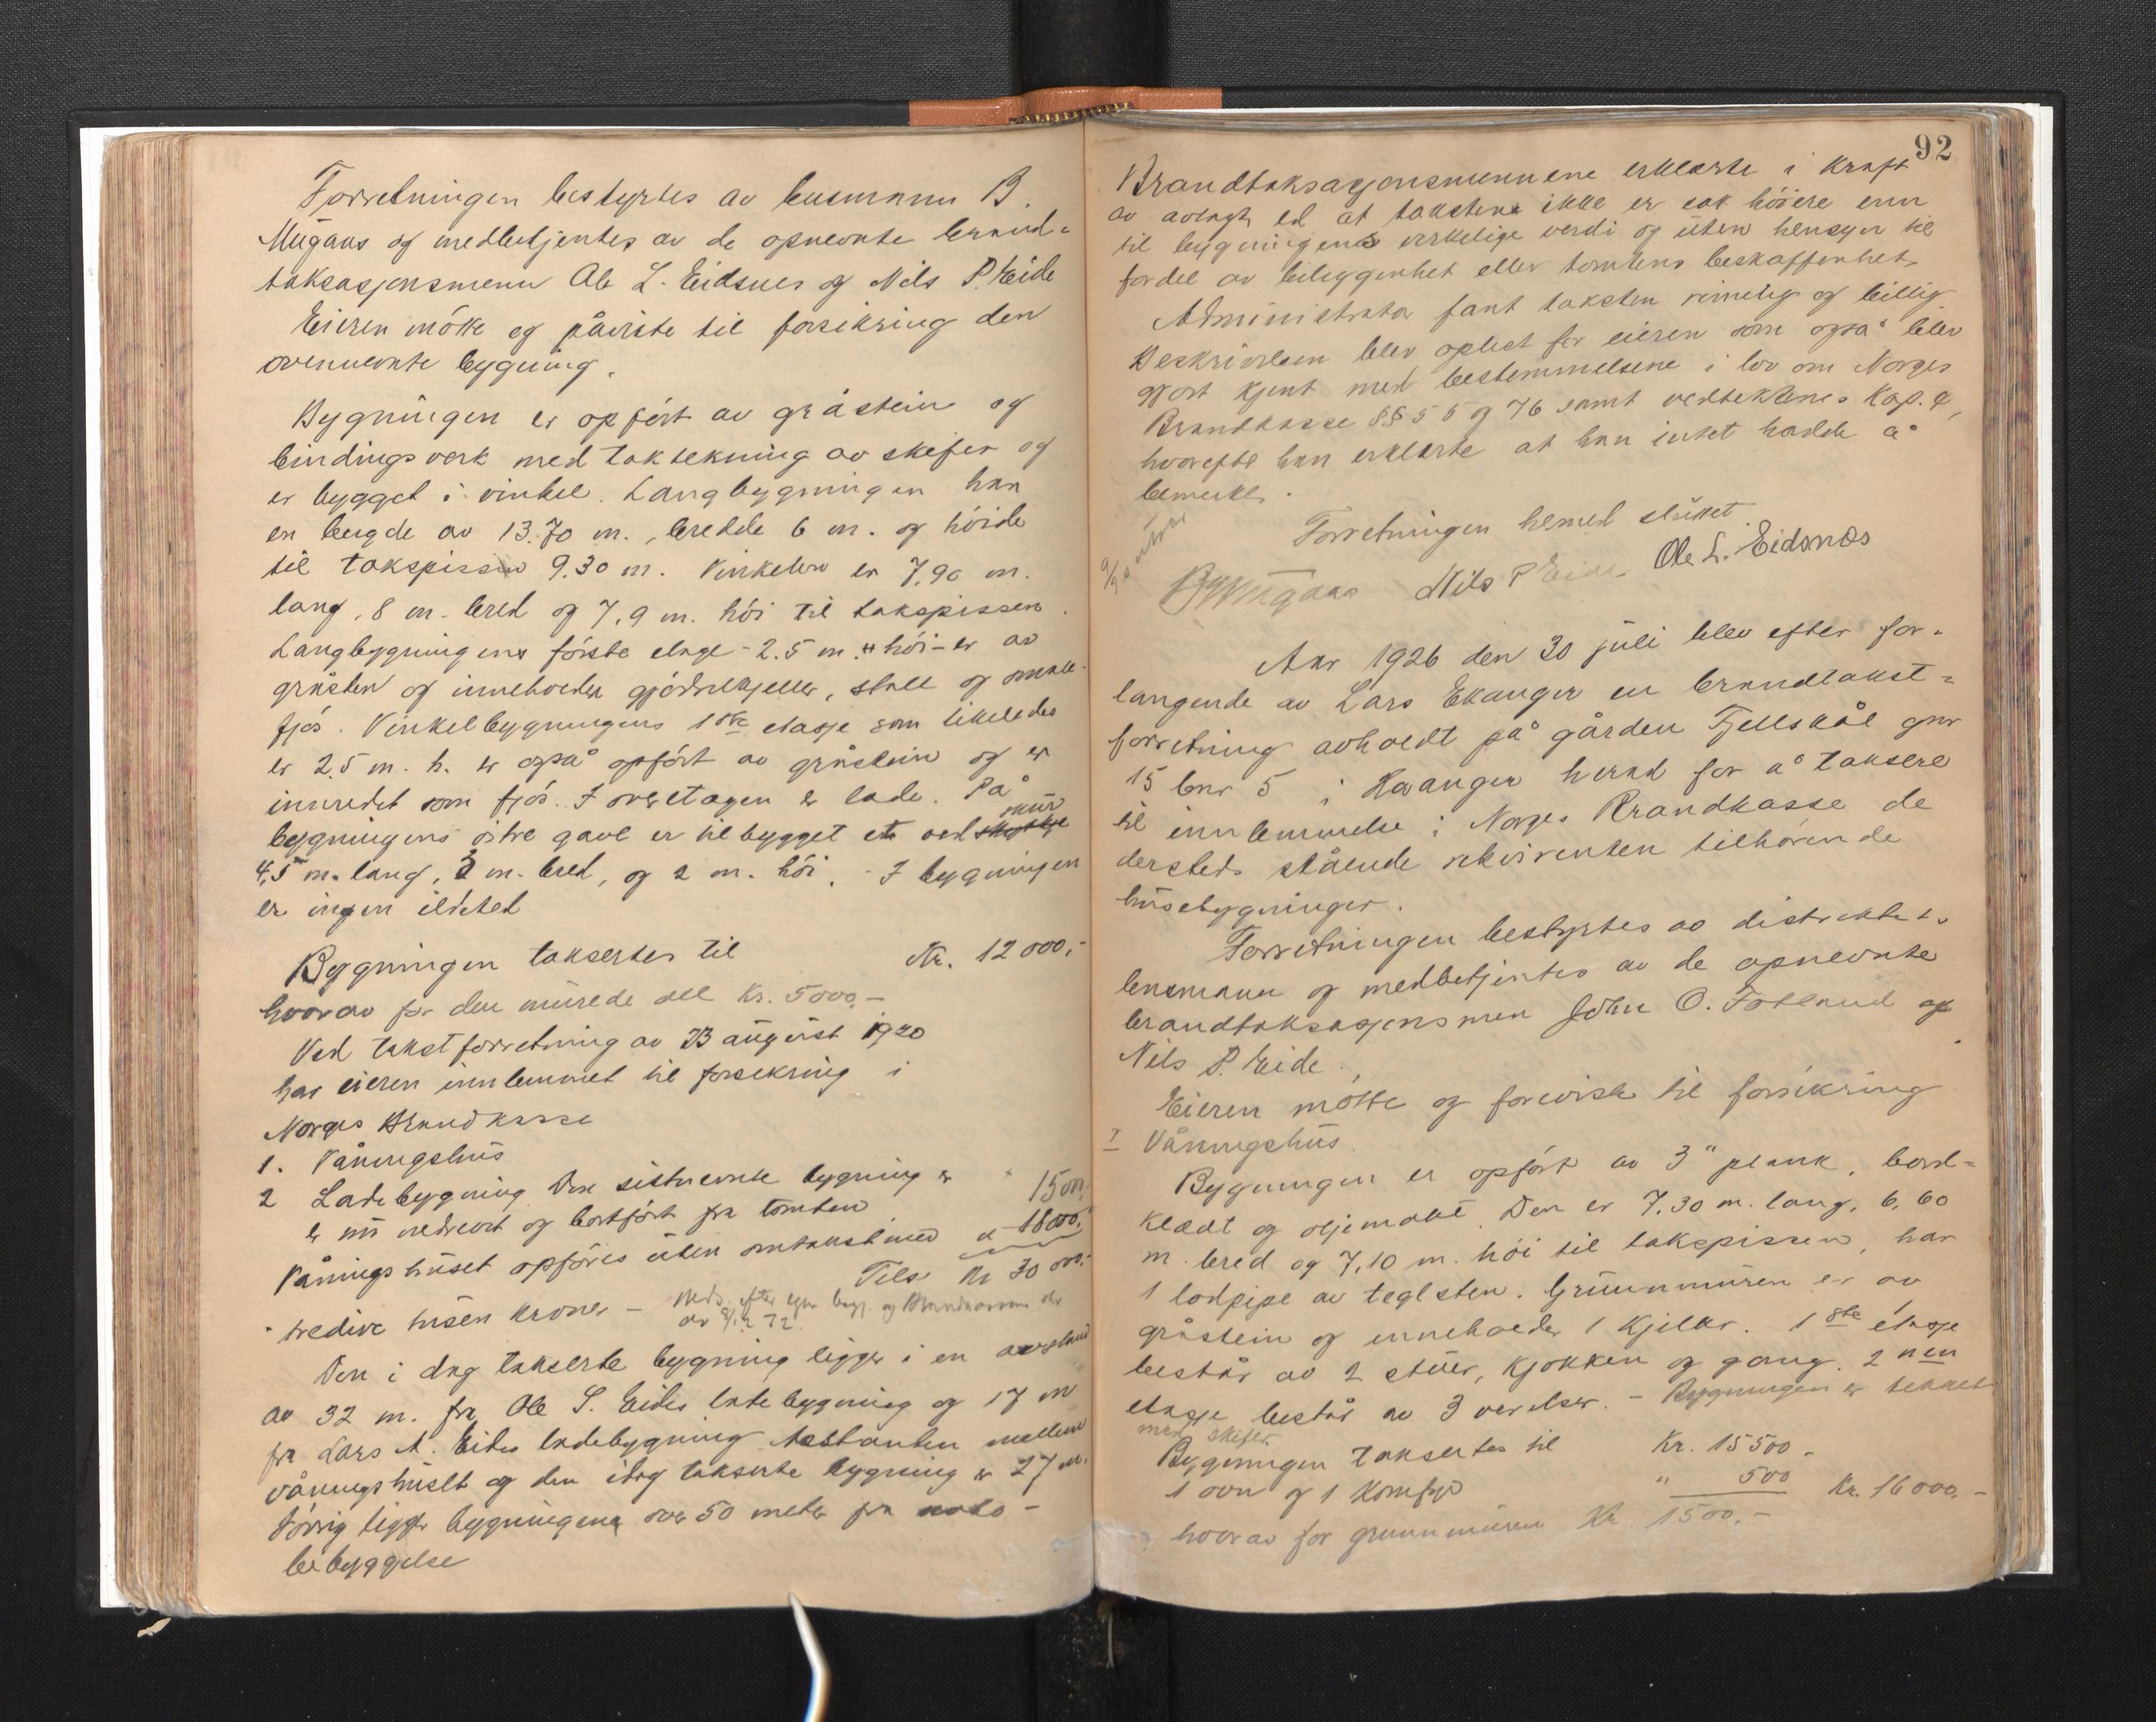 Forretningen bestyrtes av lensmann B.
Mugaas og medbetjentes av de opnevnte brand-
taksasjonsmenn Ole L. Eidsnes og Nils P. Eide
Eieren møtte og påviste til forsikring den
ovennevnte bygning.
Bygningen er opført av gråstein og
bindingsverk med taktekning av skifer og
er bygget i vinkel. Langbygningen har
en lengde av 13.70 m., bredde 6 m. og høide
til takspissen 9.30 m. Vinkelen er 7,90 m.
lang, 8 m. bred og 7,9 m. høi til takspissen.
Langbygningens første etage - 2.5 m. høi - er av
gråsten og inneholder gjødselkjeller, stall og smale-
fjøs. Vinkelbygningens 1ste etasje som likeledes
er 2,5 m. h. er også opført av gråstein og er
innredet som fjøs. I overetagen er lade. På
bygningens østre gavl er tilbygget et vedskur
4,5 m. lang, 3 m. bred, og 2 m. høi. - I bygningen
er ingen ildsted
Bygningen taksertes til Kr. 12 000,-
hvorav for den murede del Kr. 5000.-
Ved takstforretning av 23 august 1920
har eieren innlemmet til forsikring i
Norges Brandkasse
1. Våningshus
2 Ladebygning Den sistnevnte bygning er
er nu nedrevet og bortført fra tomten
Våningshuset opføres uten omtakst med " 18000,-
Tils Kr 30 000.-
tredive tusen kroner -
Den i dag takserte bygning ligger i en avstand
av 32 m. fra Ole S. Eides ladebygning og 17 m
fra Lars A. Eides ladebygning Avstanden mellem
våningshuset og den idag takserte bygning er 27 m.
Forøvrig ligger bygningene over 50 meter fra nabo-
bebyggelse
92
Brandtaksasjonsmennene erklærte i kraft
av avlagt ed at takstene ikke er sat høiere enn
til bygningens virkelige verdi og uten hensyn til
fordel av beliggenhet eller tomtens beskaffenhet
Administrator fant taksten rimelig og billig
Beskrivelsen blev oplest for eieren som også blev
gjort kjent med bestemmelsene i lov om Norges
Brandkasse §§ 55 og 76 samt vedtektenes Kap. 4,
hvorefter han erklærte at han intet hadde å
bemerke.
Forretningen hermed sluttet
B Mugaas Nils P Eide Ole L. Eidsnes
Aar 1926 den 30 juli blev efter for-
langende av Lars Ekanger en brandtakst-
forretning avholdt på gården Fjellskål gnr
15 bnr 5 i Haanger herad for å taksere
til innlemmelse i Norges Brandkasse de
dersteds stående rekvirenten tilhørende
husebygninger.
Forretningen bestyrtes av distriktets
lensmann og medbetjentes av de opnevnte
brandtaksasjonsmen John O. Fotland og
Nils P. Eide.
Eieren møtte og foreviste til forsikring
I Våningshus
Bygningen er opført av 3" plank, bord-
klædt og oljemalt. Den er 7.30 m. lang, 6,60
m. bred og 7,10 m. høi til takspissen, har
1 lodpipe av teglsten. Grunnmuren er av
gråstein og inneholder 1 kjeller. 1ste etasje
består av 2 stuer, kjøkken og gang. 2nen
etasje består av 3 værelser. - Bygningen er tekket
med skifer
Bygningen taksertes til Kr. 15500.-
1 ovn og 1 komfyr " 500 Kr. 16 000,-
hvorav for grunnmuren Kr. 1500.-